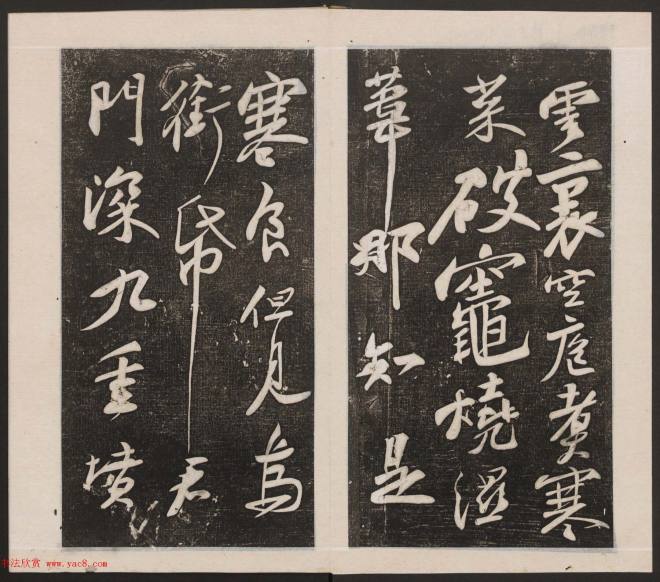 雲裏空庖煮寒
菜破竈燒濕
葦那知是
寒食但見烏
銜帋君
門深九重墳
书法欣赏 www.yac8.com